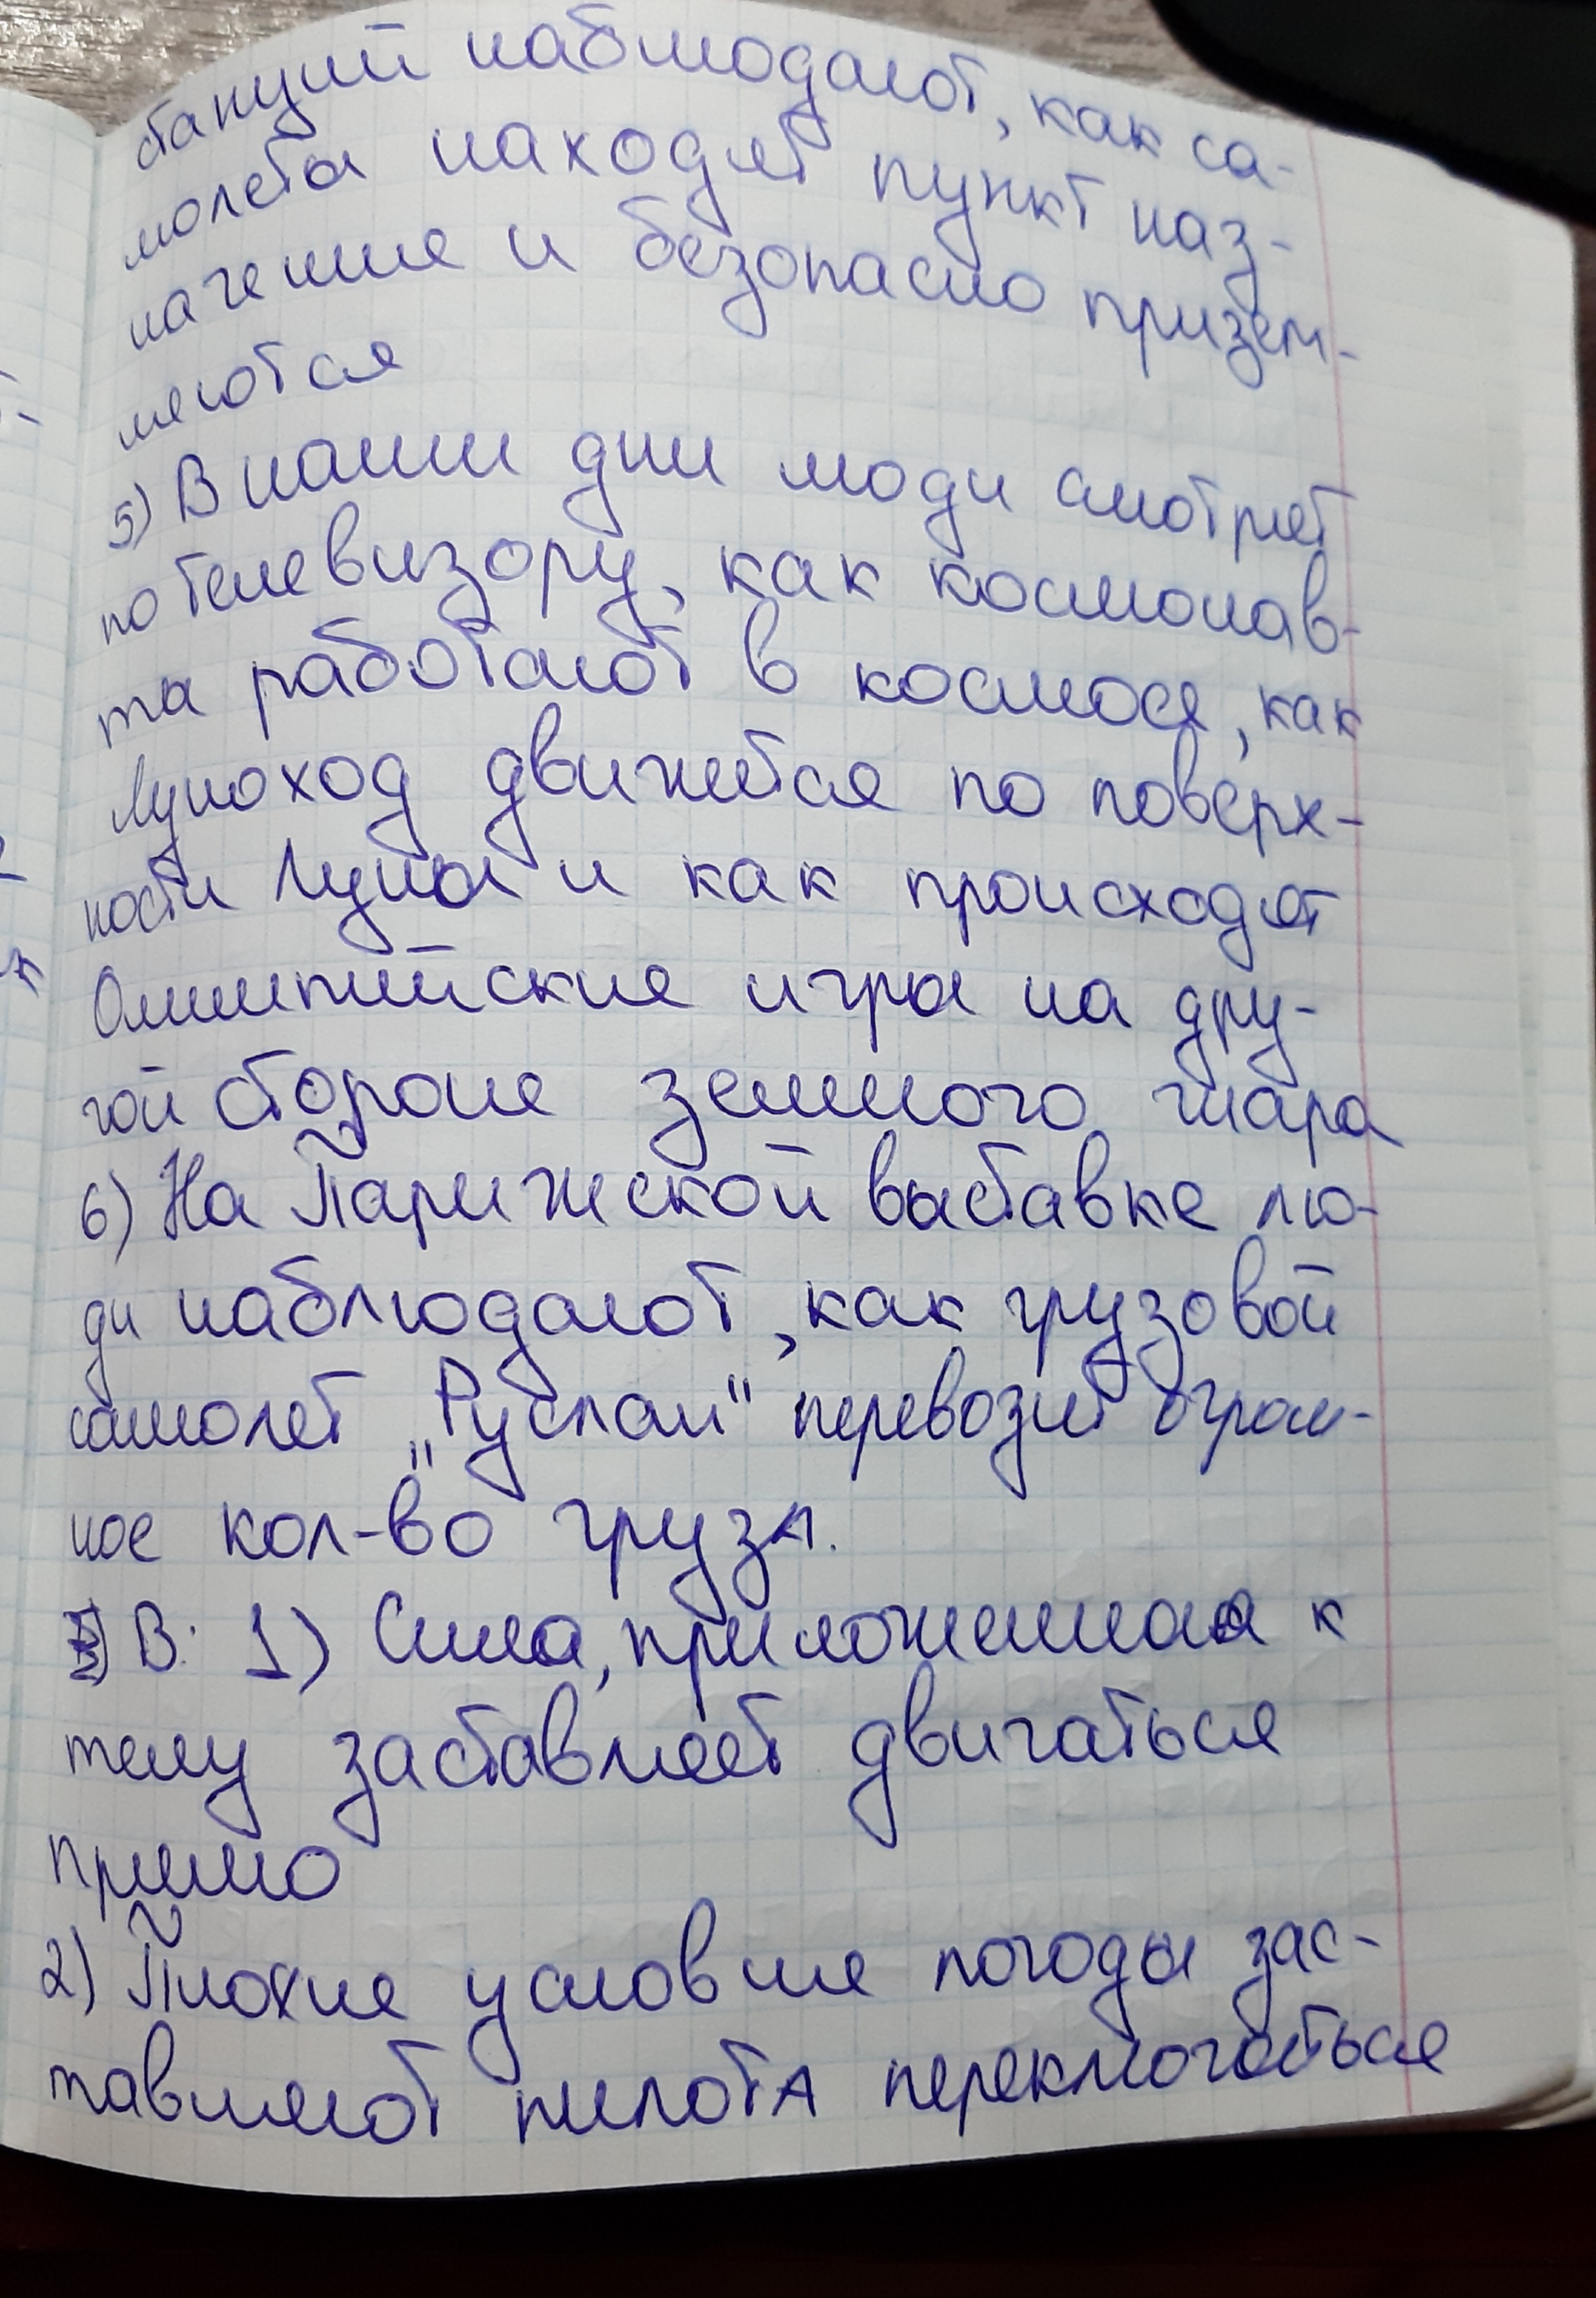 станций наблюдают, как са-
молеты находят пункт наз-
начение и безопасно призем-
ляются
5) В наши дни люди смотрят
по телевизору, как космонав-
ты работают в космосе, как
Луноход движется по поверх-
ности Луны и как происходят
Олимпийские игры на дру-
гой стороне земного шара
6) На Парижской выставке лю-
ди наблюдают, как грузовой
самолет „Руслан" перевозит огром-
ное кол-во груза.
В: 1) Сила, приложенная к
телу заставляет двигаться
прямо
2) Плохие условие погоды зас-
тавляют пилота переключаться